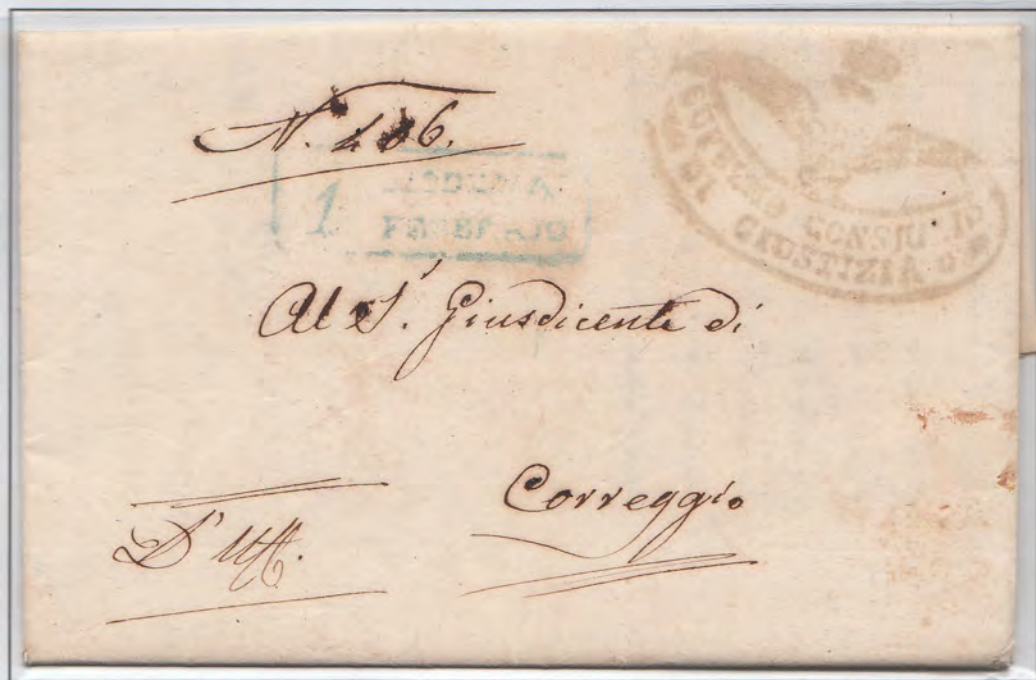 N. 406.
1 MODENA
FEBBRAJO
SUPREMO CONSIGLIO
DI GIUSTIZIA
Al S.r Giusdicente di
Correggio
D'Uff.